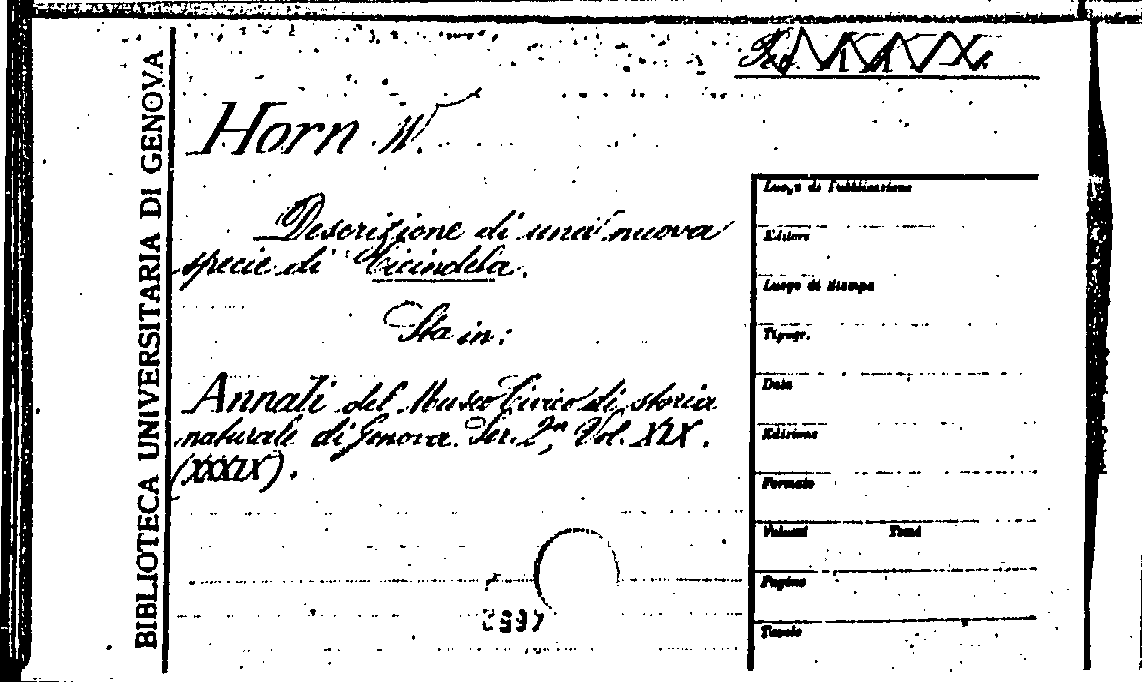 BIBLIOTECA UNIVERSITARIA DI GENOVA
Horn W.
Descrizione di una nuova
specie di Cicindela.
Sta in:
Annali del Museo Civico di storia
naturale di Genova. Ser. 2ª, Vol. XIX.
(XXXIX).
Luogo di Pubblicazione
Editore
Luogo di stampa
Tipogr.
Data
Edizione
Formato
Volumi Tomi
Pagine
Tavole